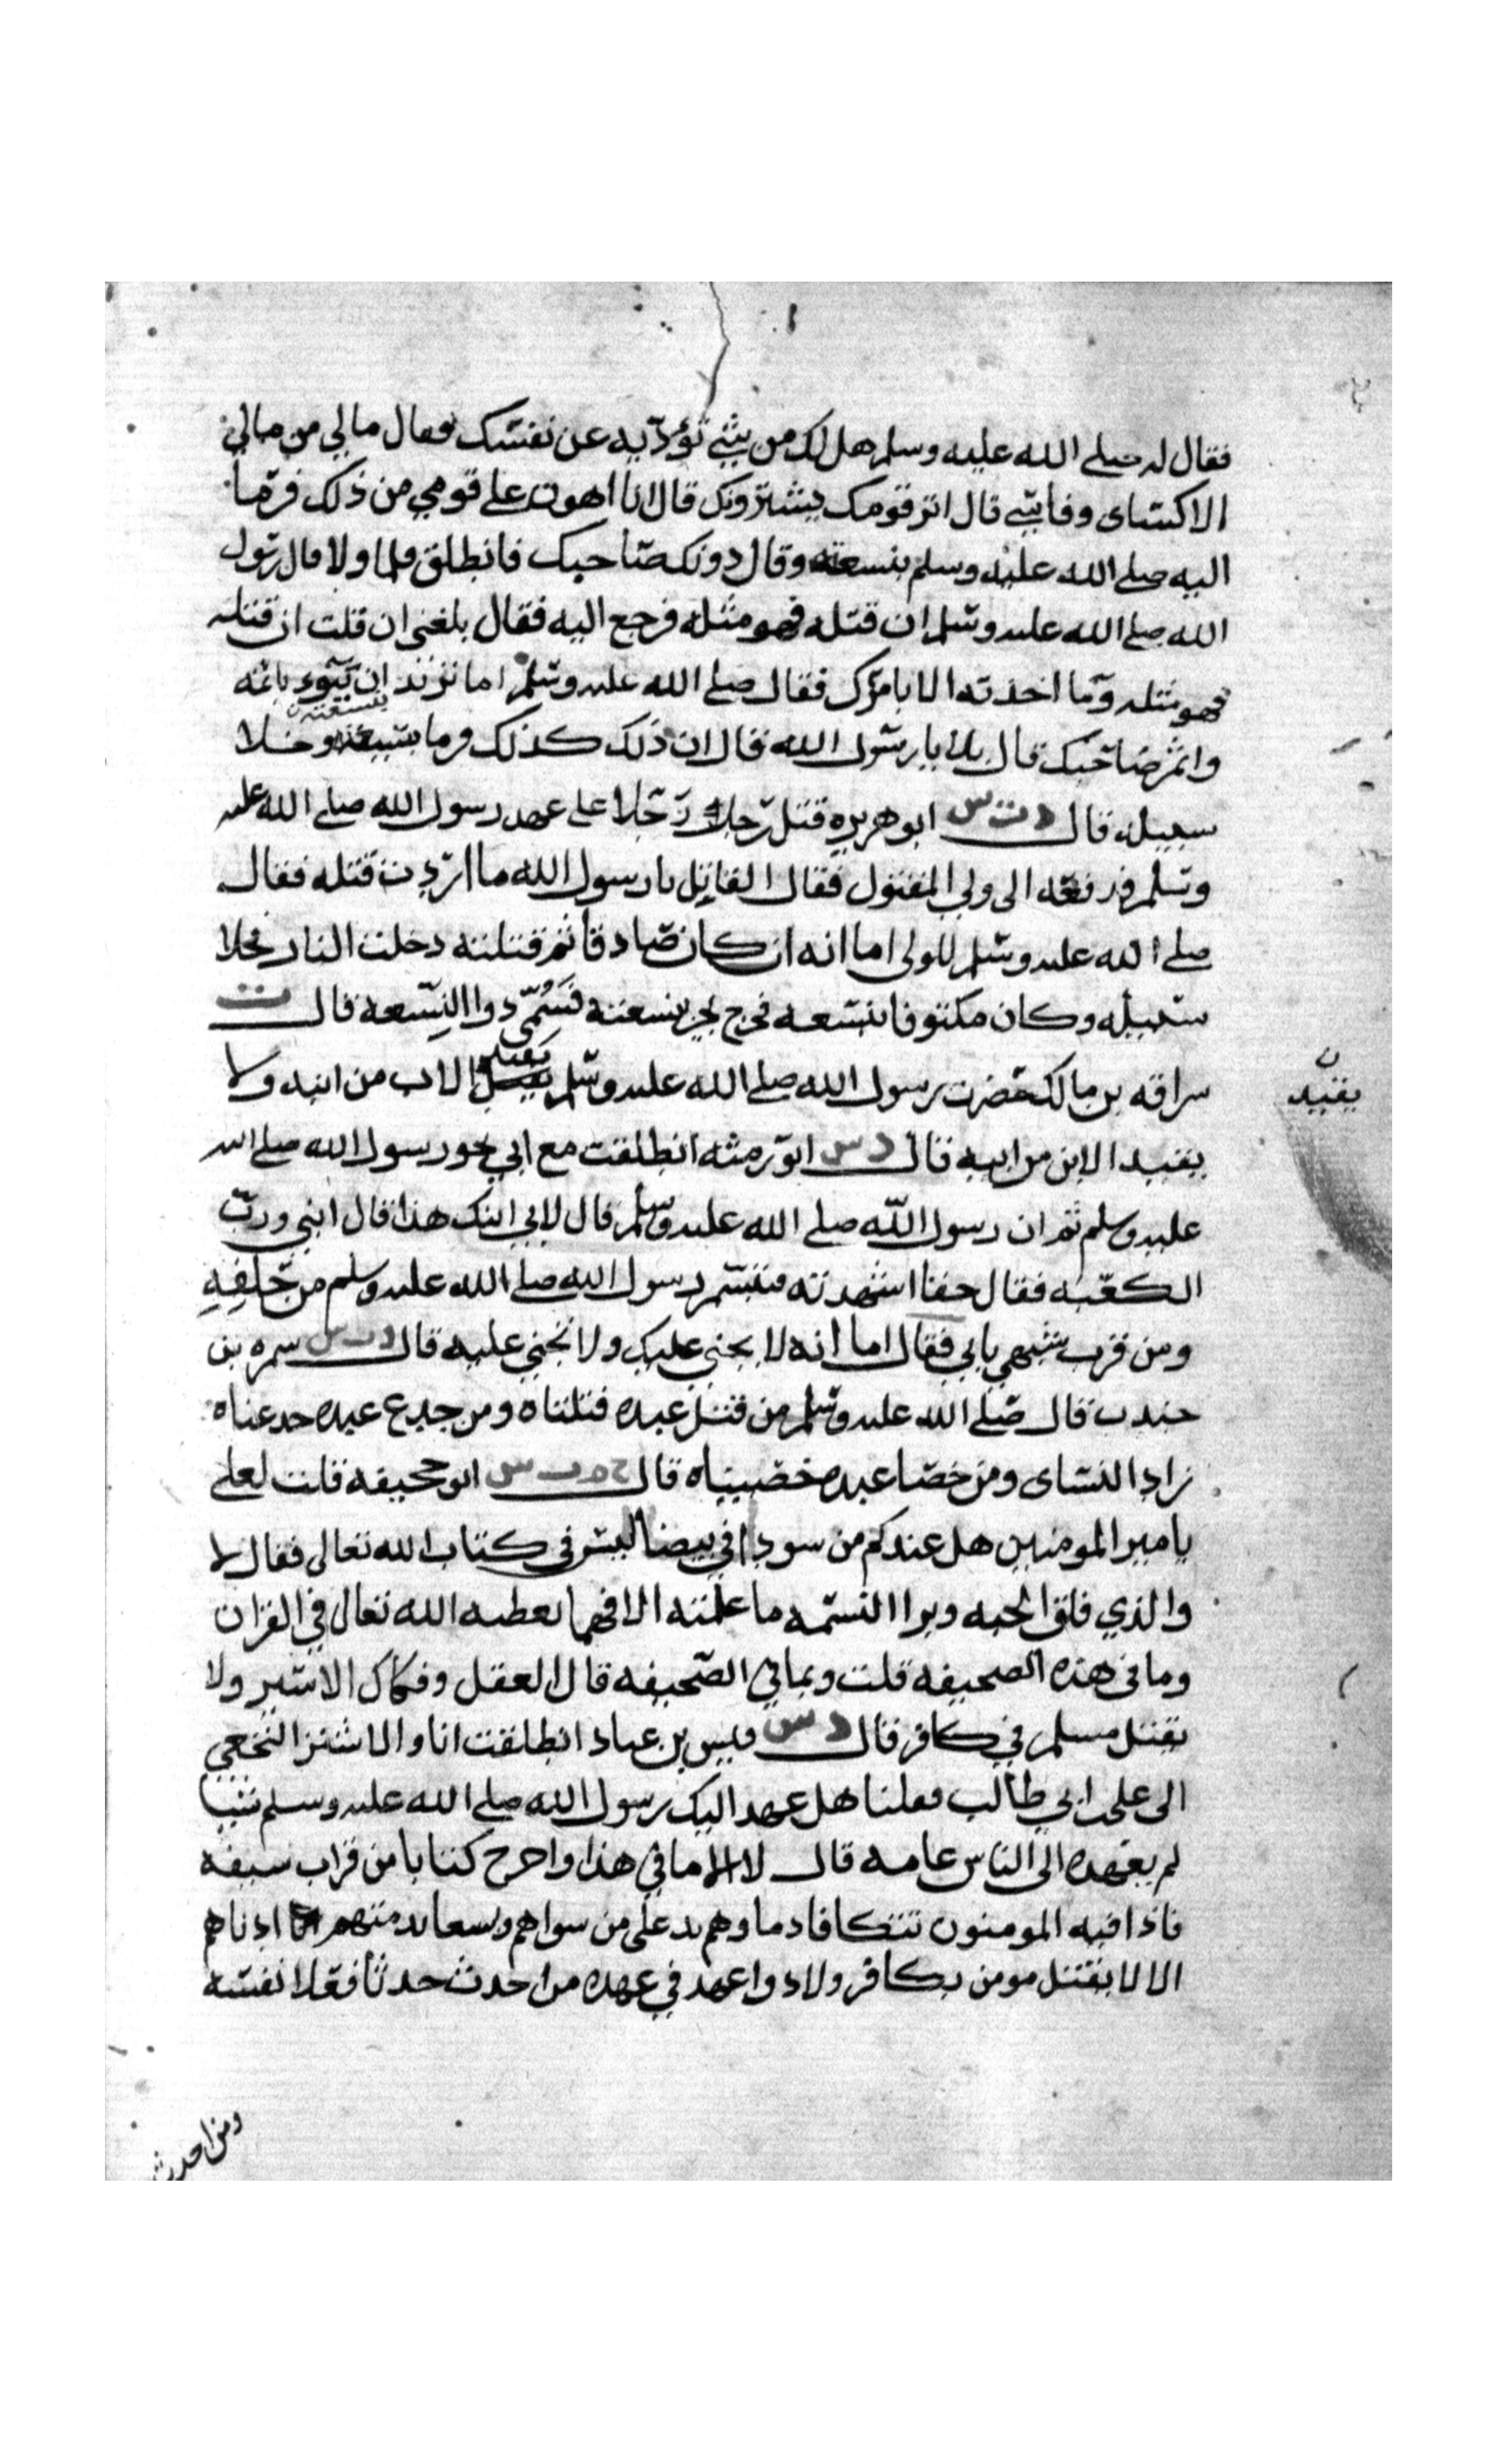 فقال له صلى الله عليه وسلم هل لك من شيء تؤديه عن نفسك فقال مالي من مالي
الا كساى وفاسي قال اترقومك يشترونك قال انا اهون على قومي من ذلك فرما
اليه صلى الله عليه وسلم بنسعته وقال دونك صاحبك فانطلق فلما ولا قال رسول
الله صلى الله عليه وسلم ان قتله فهو مثله فرجع اليه فقال بلغني ان قلت ان قتله
فهو مثله وما اخذته الا بامرك فقال صلى الله عليه وسلم اما تريد ان يبوء باثمه
واثم صاحبك قال بلا يا رسول الله قال ان ذلك كذلك فرما بنسعته وخلا
سبيله قال د ت س ابو هريره قتل رجلا رجلا على عهد رسول الله صلى الله عليه
وسلم فدفعه الى ولي المقتول فقال القاتل يا رسول الله ما اردت قتله فقال
صلى الله عليه وسلم للولي اما انه ان كان صادقا ثم قتلته دخلت النار فخلا
سبيله وكان مكتوفا بنسعه فخرج يجر نسعته فسمي ذوا النسعه قال ت
سراقه بن مالك حضرت رسول الله صلى الله عليه وسلم يقيد الاب من ابنه ولا
يقيد
يقيد الابن من ابيه قال د س ابو رمثه انطلقت مع ابي نحو رسول الله صلى الله
عليه وسلم ثم ان رسول الله صلى الله عليه وسلم قال لابي ابنك هذا قال ابني ورب
الكعبه فقال حقا اشهد ته فتبسم رسول الله صلى الله عليه وسلم من حلفه
ومن قرب شبهي بابي فقال اما انه لا يجني عليك ولا تجني عليه قال د ت س سمره بن
جندب قال صلى الله عليه وسلم من قتل عبده قتلناه ومن جدع عبده جدعناه
زاد النساى ومن خصا عبده خصيناه قال خ ت س ابو جحيفه قلت لعلي
يا مير المومنين هل عندكم من سودا في بيضا ليس في كتاب الله تعالى فقال لا
والذي فلق الحبه وبرا النسمه ما علمته الا فهما يعطيه الله تعالى في القران
وما في هذه الصحيفه قلت وما في الصحيفه قال العقل وفكاك الاسير ولا
يقتل مسلم في كافر قال د س قيس بن عباد انطلقت انا والاشتر النخعي
الى علي ابي طالب فقلنا هل عهد اليك رسول الله صلى الله عليه وسلم شيا
لم يعهده الى الناس عامه قال لا الا ما في هذا واخرج كتابا من قراب سيفه
فاذا فيه المومنون تتكافا دماوهم وهم يد على من سواهم ويسعا بذمتهم ادناهم
الا لا يقتل مومن بكافر ولا ذوا عهد في عهده من احدث حدثا فعلا نفسه
ومن احدث